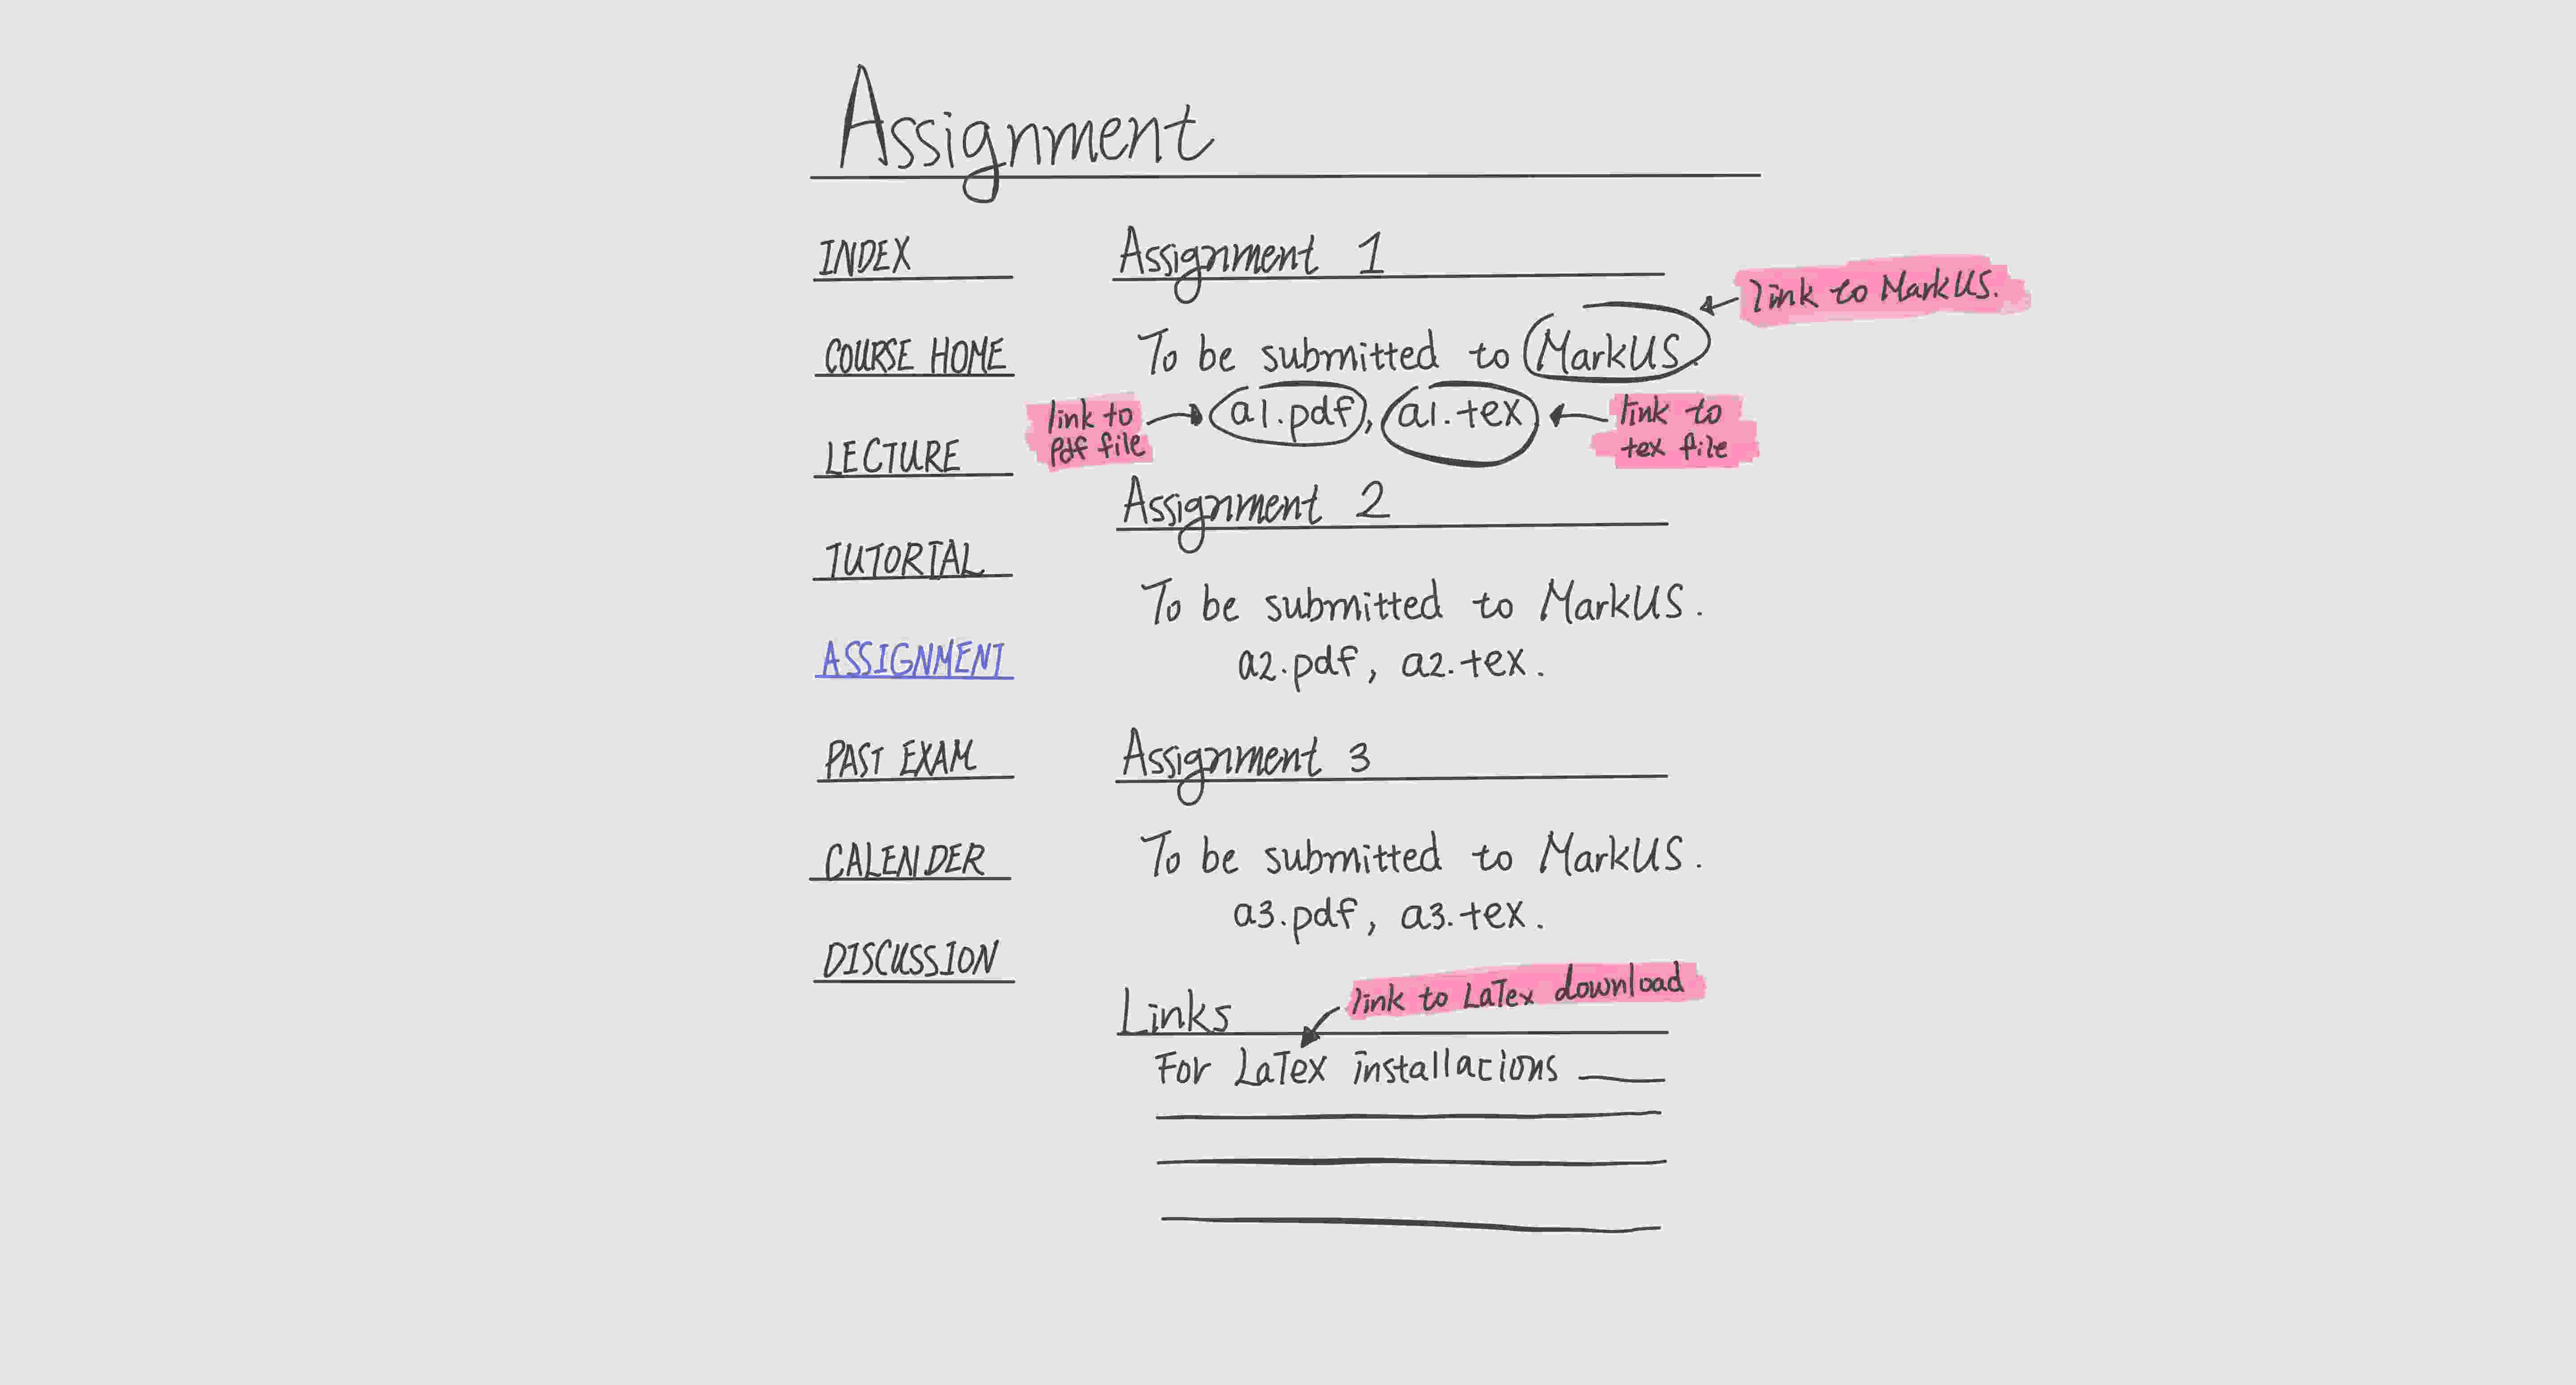 Assignment
INDEX
COURSE HOME
LECTURE
TUTORIAL
ASSIGNMENT
PAST EXAM
CALENDER
DISCUSSION
Assignment 1
link to MarkUS.
To be submitted to MarkUS.
link to
pdf file
a1.pdf, a1.tex
link to
tex file
Assignment 2
To be submitted to MarkUS.
a2.pdf, a2.tex.
Assignment 3
To be submitted to MarkUS.
a3.pdf, a3.tex.
Links
link to LaTex download
For LaTex installations